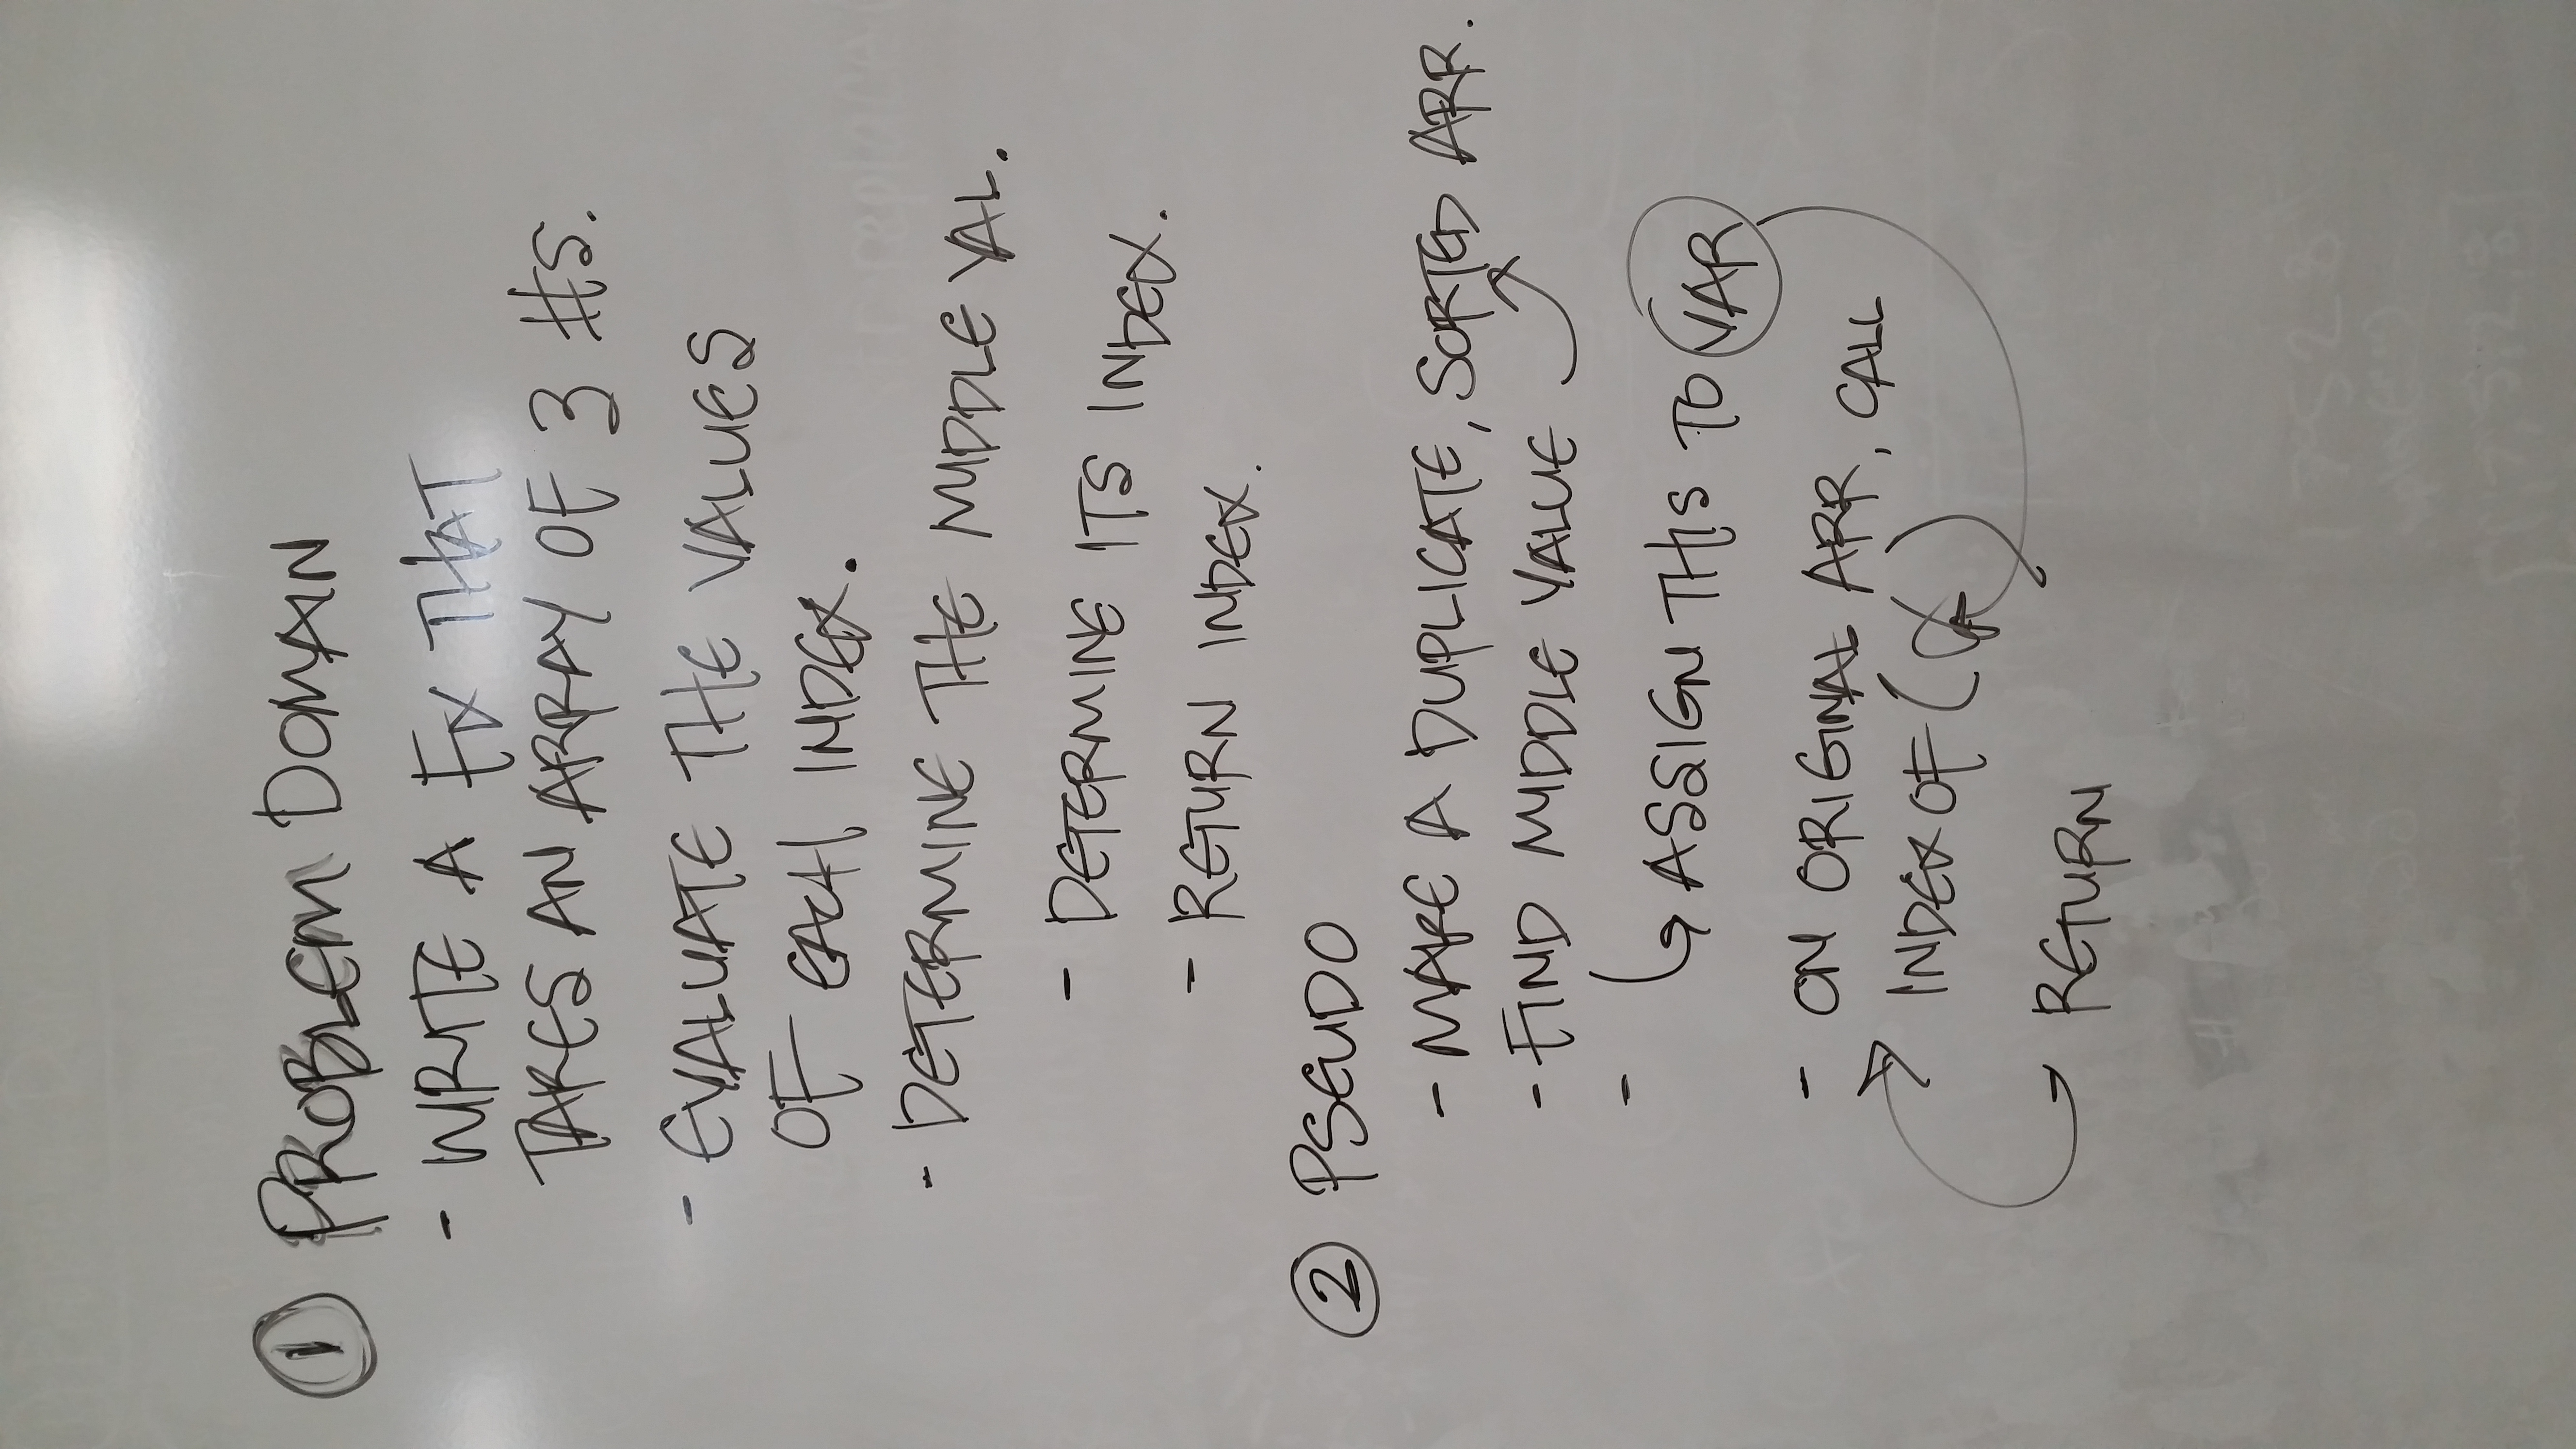 ① PROBLEM DOMAIN
- WRITE A FX THAT
TAKES AN ARRAY OF 3 #S.
- EVALUATE THE VALUES
OF EACH INDEX.
- DETERMINE THE MIDDLE VAL.
- DETERMINE ITS INDEX.
- RETURN INDEX.
② PSEUDO
- MAKE A DUPLICATE, SORTED ARR.
- FIND MIDDLE VALUE
- ASSIGN THIS TO VAR
- ON ORIGINAL ARR, CALL
INDEX OF ( )
- RETURN